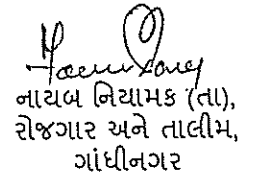 નાયબ નિયામક (તા),
રોજગાર અને તાલીમ,
ગાંધીનગર